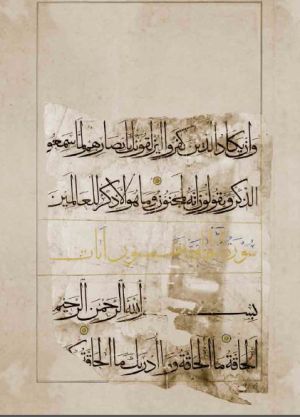 وان يكاد الذين كفروا ليزلقونك بابصارهم لما سمعوا
الذكر ويقولون انه لمجنون وما هو الا ذكر للعالمين
سورة الحاقة آيات
بسم الله الرحمن الرحيم
الحاقة ما الحاقة وما ادريك ما الحاقة